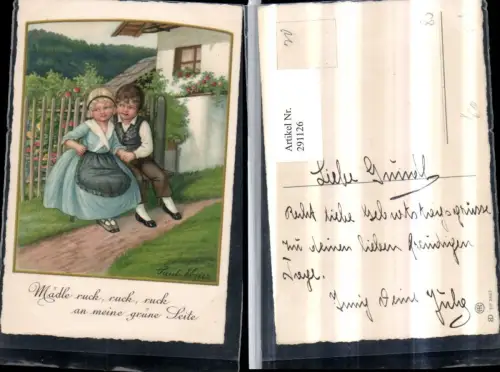 Mädle ruck, ruck, ruck
an meine grüne Seite
Artikel Nr.
291126
Liebe Gundl
Recht liebe Geburtstagsgrüsse
zu deinem lieben freudigen
Tage.
Innig Deine